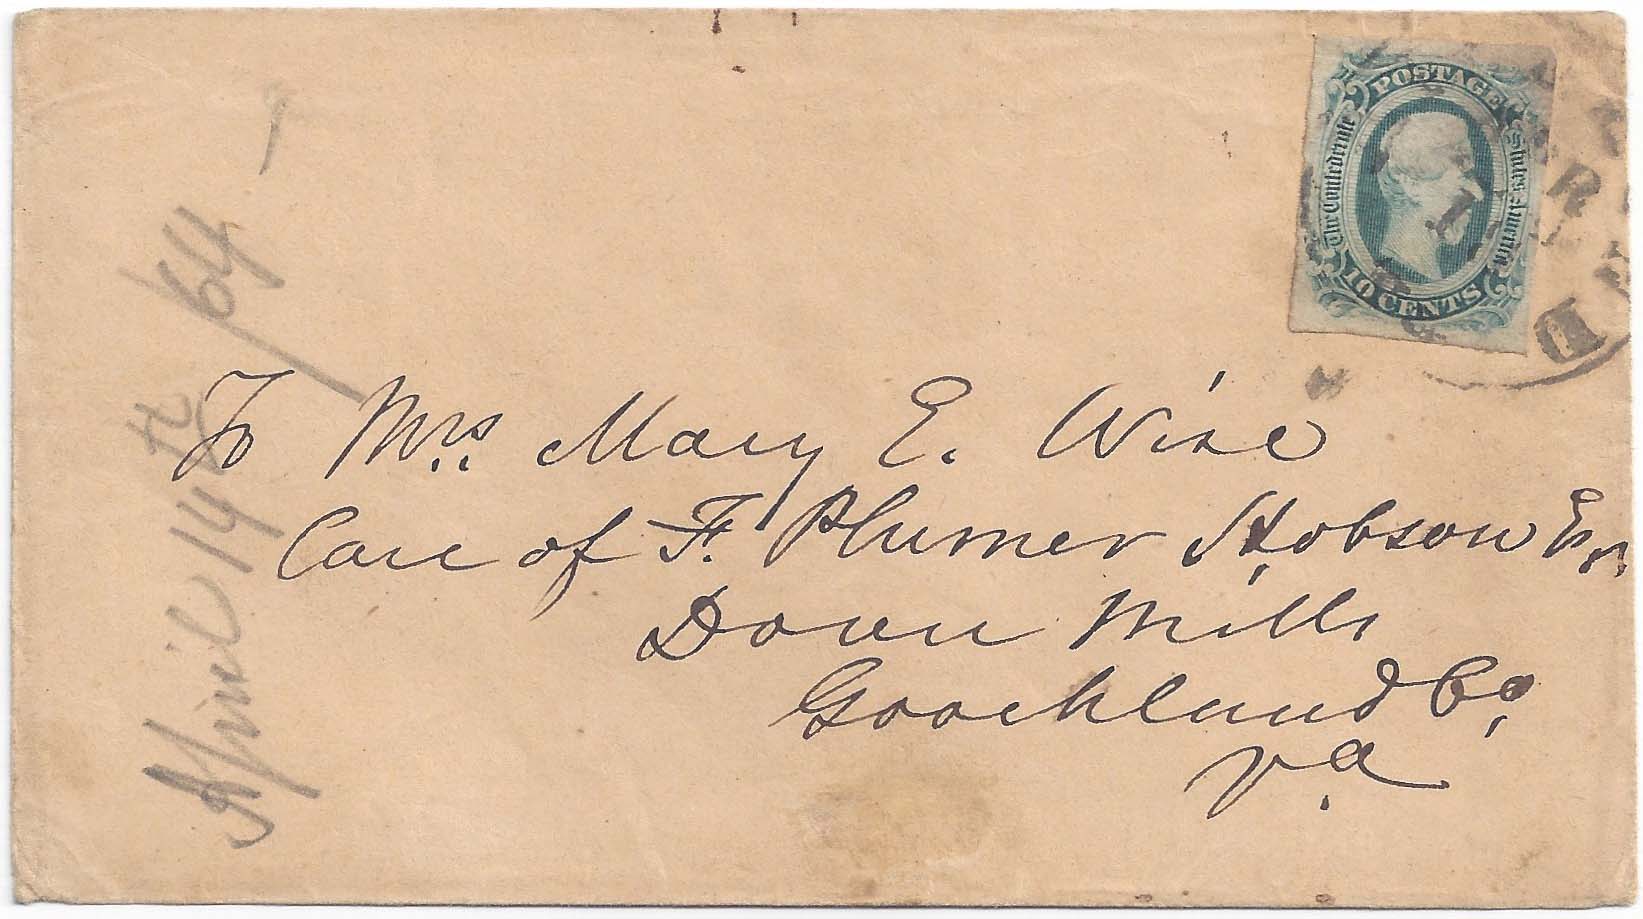 April 14th/64
POSTAGE
The Confederate States America
10 CENTS
To Mrs. Mary E. Wise
Care of F. Plumer Hobson Esq
Dover Mills
Goochland Co,
Va.